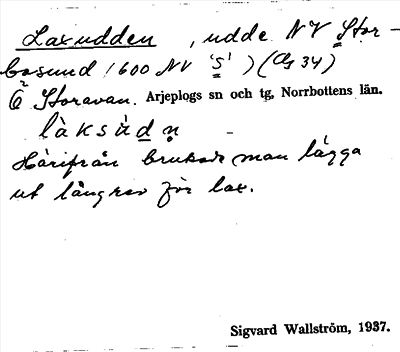 Laxudden, udde NV Stor-
bosund (600 NV 'S') (Ag 34)
Ö Storavan. Arjeplogs sn och tg, Norrbottens län.
làksùdn̥
Härifrån brukade man lägga
ut långrev för lax.
Sigvard Wallström, 1937.